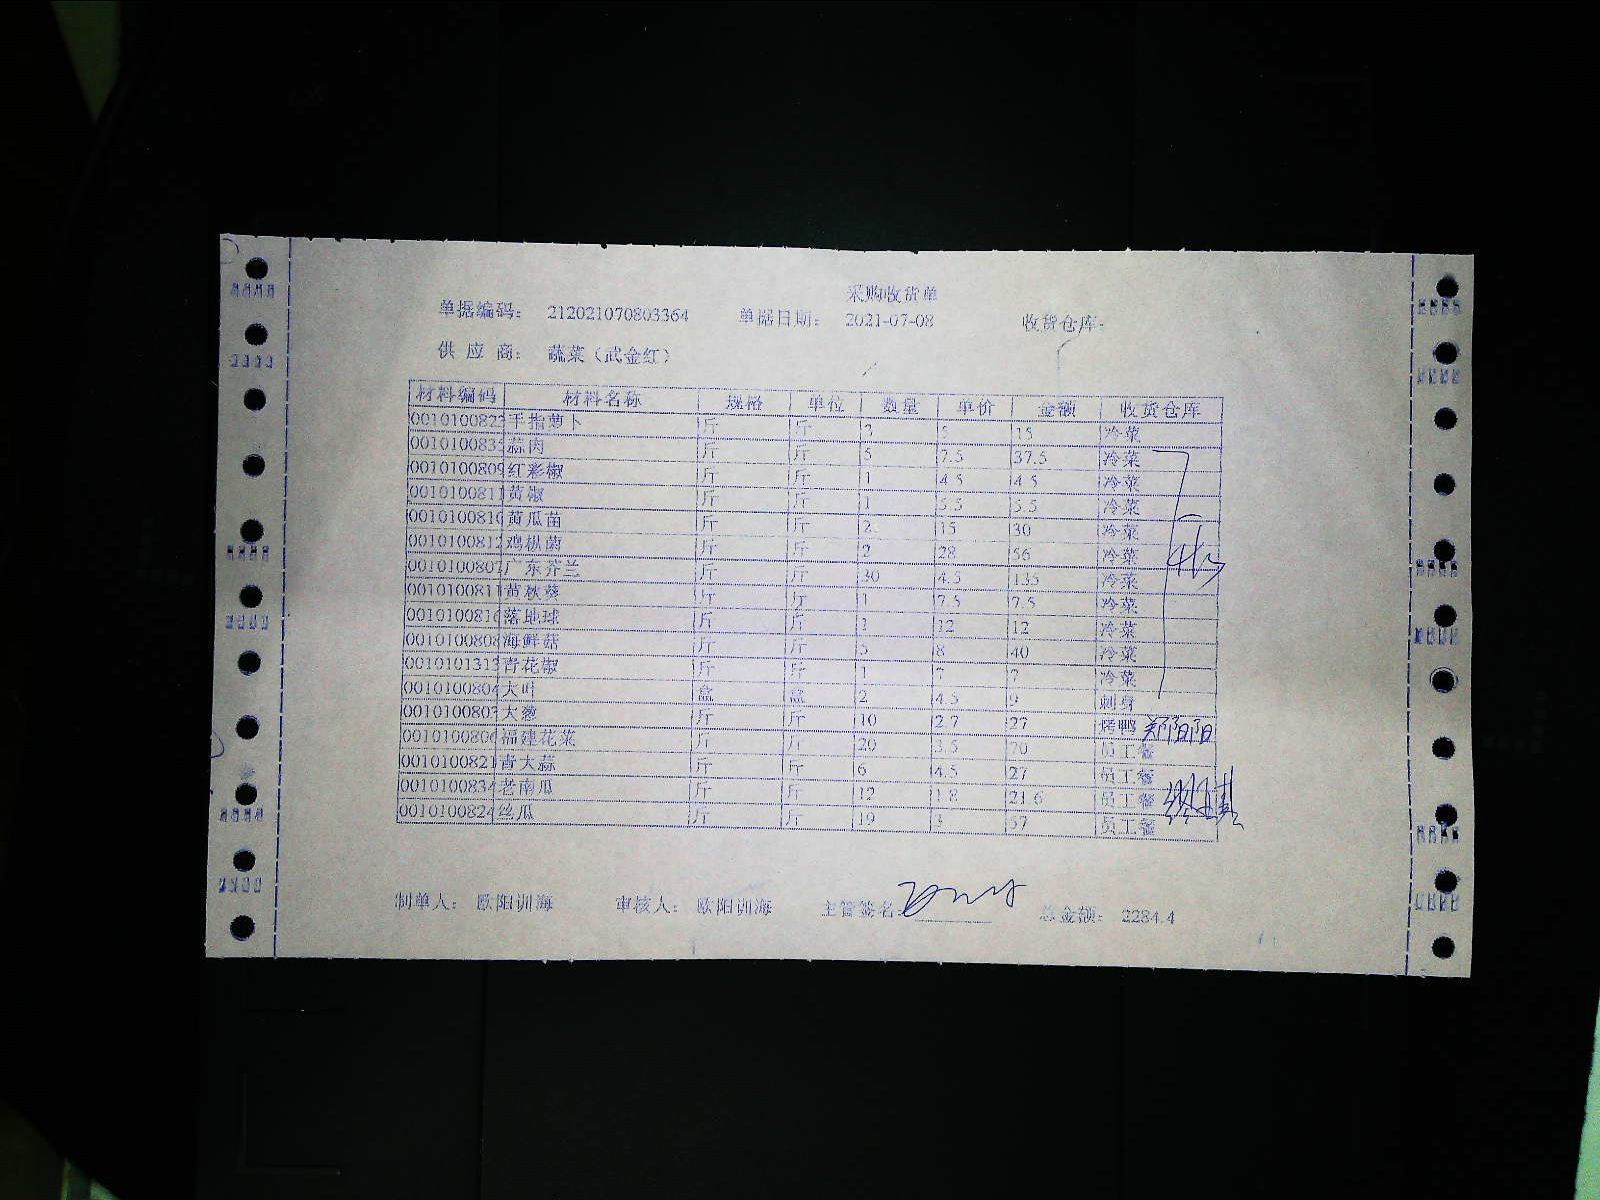 采购收货单
单据编码： 212021070803364 单据日期： 2021-07-08 收货仓库：
供 应 商： 蔬菜（武金红）
材料编码 材料名称 规格 单位 数量 单价 金额 收货仓库
0010100823 手指萝卜 斤 斤 15 冷菜
0010100835 蒜肉 斤 斤 5 7.5 37.5 冷菜
0010100809 红彩椒 斤 斤 1 4.5 4.5 冷菜
0010100811 黄椒 斤 斤 1 5.5 5.5 冷菜
0010100810 黄瓜苗 斤 斤 2 15 30 冷菜
0010100812 鸡枞菌 斤 斤 2 28 56 冷菜
0010100807 广东芥兰 斤 斤 30 4.5 135 冷菜
0010100811 黄秋葵 斤 斤 1 7.5 7.5 冷菜
0010100816 落地球 斤 斤 1 12 12 冷菜
0010100808 海鲜菇 斤 斤 5 8 40 冷菜
0010101313 青花椒 斤 斤 1 7 7 冷菜
0010100804 大叶 盒 盒 2 4.5 9 刺身
0010100803 大葱 斤 斤 10 2.7 27 烤鸭 郑阳阳
0010100806 福建花菜 斤 斤 20 3.5 70 员工餐
0010100821 青大蒜 斤 斤 6 4.5 27 员工餐
0010100834 老南瓜 斤 斤 12 1.8 21.6 员工餐
0010100824 丝瓜 斤 斤 19 3 57 员工餐
制单人： 欧阳训海 审核人： 欧阳训海 主管签名： 总金额： 2284.4